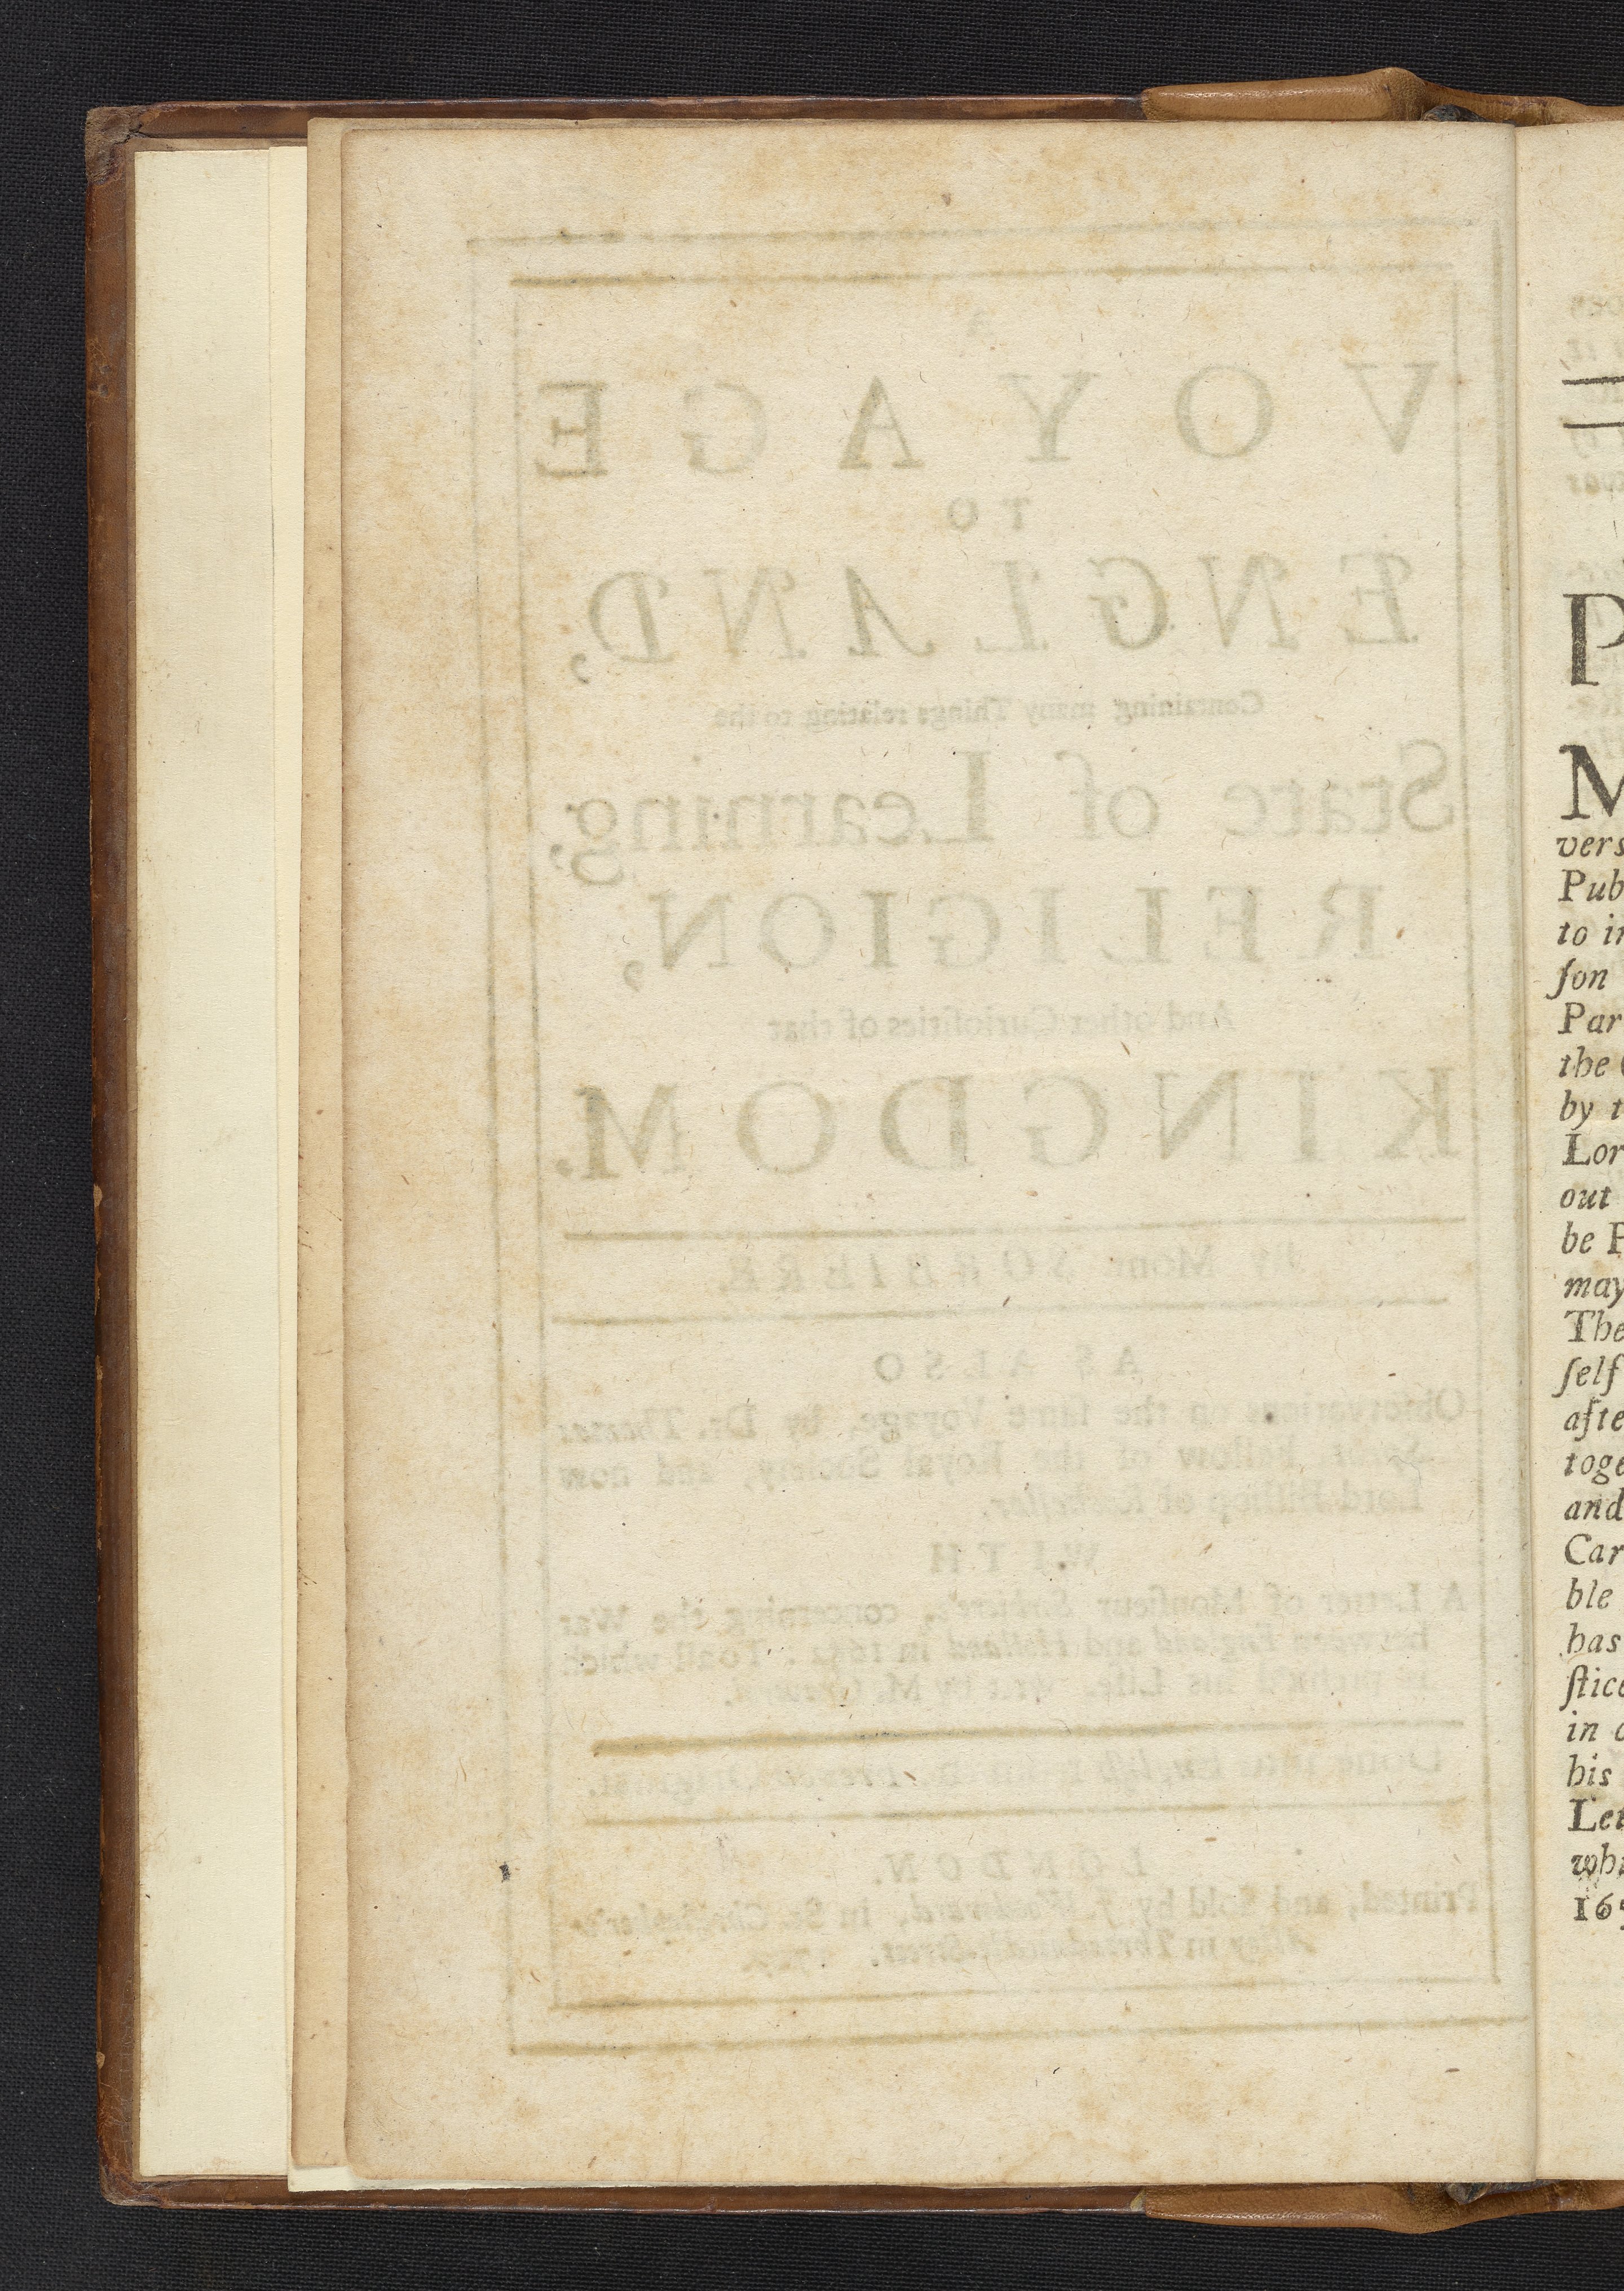 A
VOYAGE
TO
ENGLAND,
Containing many Things relating to the
State of Learning,
RELIGION,
And other Curiosities of that
KINGDOM.
By Mons. SORBIERE.
AS ALSO
Observations on the same Voyage, by Dr. Thomas
Sprat, Fellow of the Royal Society, and now
Lord Bishop of Rochester.
WITH
A Letter of Monsieur Sorbiere's, concerning the War
between England and Holland in 1652: To all which
is prefix'd his Life, writ by M. Graverol.
Done into English from the
LONDON,
Printed, and Sold by J. Woodward, in St. Christopher's-
Alley in Threadneedle-Street.
P
M
vers
Pub
to in
ſon
Par
the
by t
Lor
out
be
may
The
ſelf
afte
toge
and
Car
ble
has
ſtice
in
his
Let
whi
165